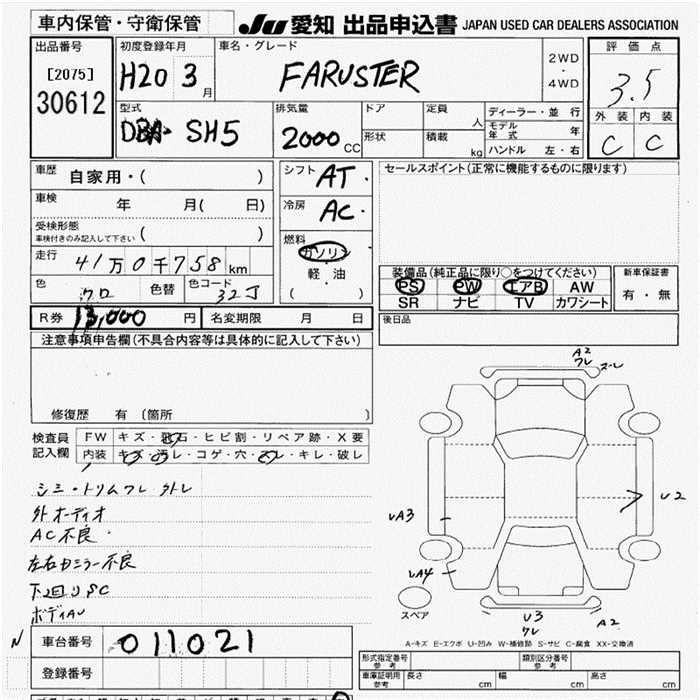 車内保管・守衛保管
JU 愛知 出品申込書 JAPAN USED CAR DEALERS ASSOCIATION
出品番号
[2075]
30612
初度登録年月
H20 3 月
車名・グレード
FARUSTER
2WD
・
4WD
評価点
3.5
外装 内装
C C
型式
DBA- SH5
排気量
2000 CC
ドア
形状
定員 人
積載 kg
ディーラー・並行
モデル年式 年
ハンドル 左・右
車歴 自家用・( )
車検 年 月( 日)
受検形態
車検付きのみ記入して下さい ( )
走行 41万0千758km
色 クロ 色替 色コード 32J
シフト AT・
冷房 AC・
燃料
ガソリン
軽・油
( )
セールスポイント(正常に機能するものに限ります)
装備品(純正品に限り○をつけてください)
PS PW エアB AW
SR ナビ TV カワシート
新車保証書
有・無
R券 13,000 円 名変期限 月 日
後日品
注意事項申告欄(不具合内容等は具体的に記入して下さい)
修復歴 有 (箇所 )
検査員
記入欄
FW キズ・飛石・ヒビ割・リペア跡・X要
内装 キズ・汚レ・コゲ・穴・スレ・キレ・破レ
シミ・トリムワレ 外レ
外オーディオ
AC不良
左右カミラー不良
下2回りSC
ボディAU
A2
ワレ
ズレ
UA3
U2
UA4
スペア
U3
ワレ
A2
A-キズ E-エクボ U-凹み W-補修跡 S-サビ C-腐食 XX-交換済
N
車台番号 011021
登録番号
形式指定番号
参考
類別区分番号
参考
車庫証明用
参考
長さ cm 幅 cm 高さ cm